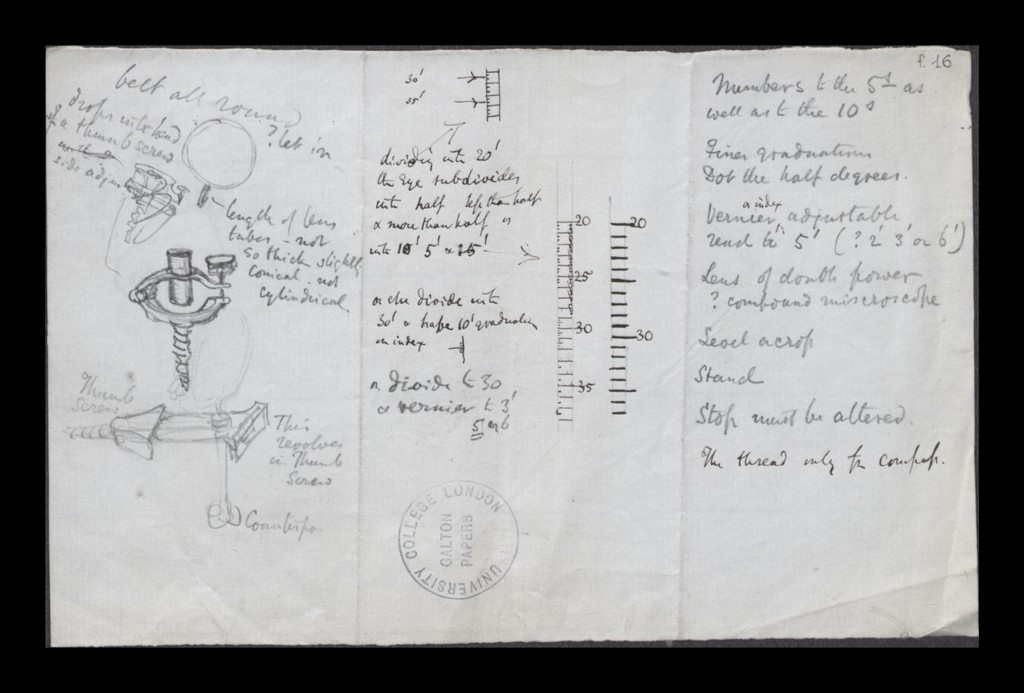 f. 16
belt all round
? let in
drops into
a thumb screw
side
length of lens
tubes - not
so thick slightly
conical - not
cylindrical
Thumb
Screw
This
revolves
in Thumb
Screw
Counterpo
30'
35'
dividing into 20'
the Eye subdivides
into half less than half
& more than half or
into 10' 5' &
or else divide into
30' & have 10' graduation
on index
or divide to 30
& vernier to 3'
5 or 6
20
25
30
35
20
30
UNIVERSITY COLLEGE LONDON
GALTON
PAPERS
Numbers to the 5s as
well as to the 10s
Finer graduations
Dot the half degrees.
or index
Vernier adjustable
read to 5' (? 2' 3' or 6')
Lens of double power
? compound miscroscope
Level across
Stand
Stop must be altered.
The thread only for compass.